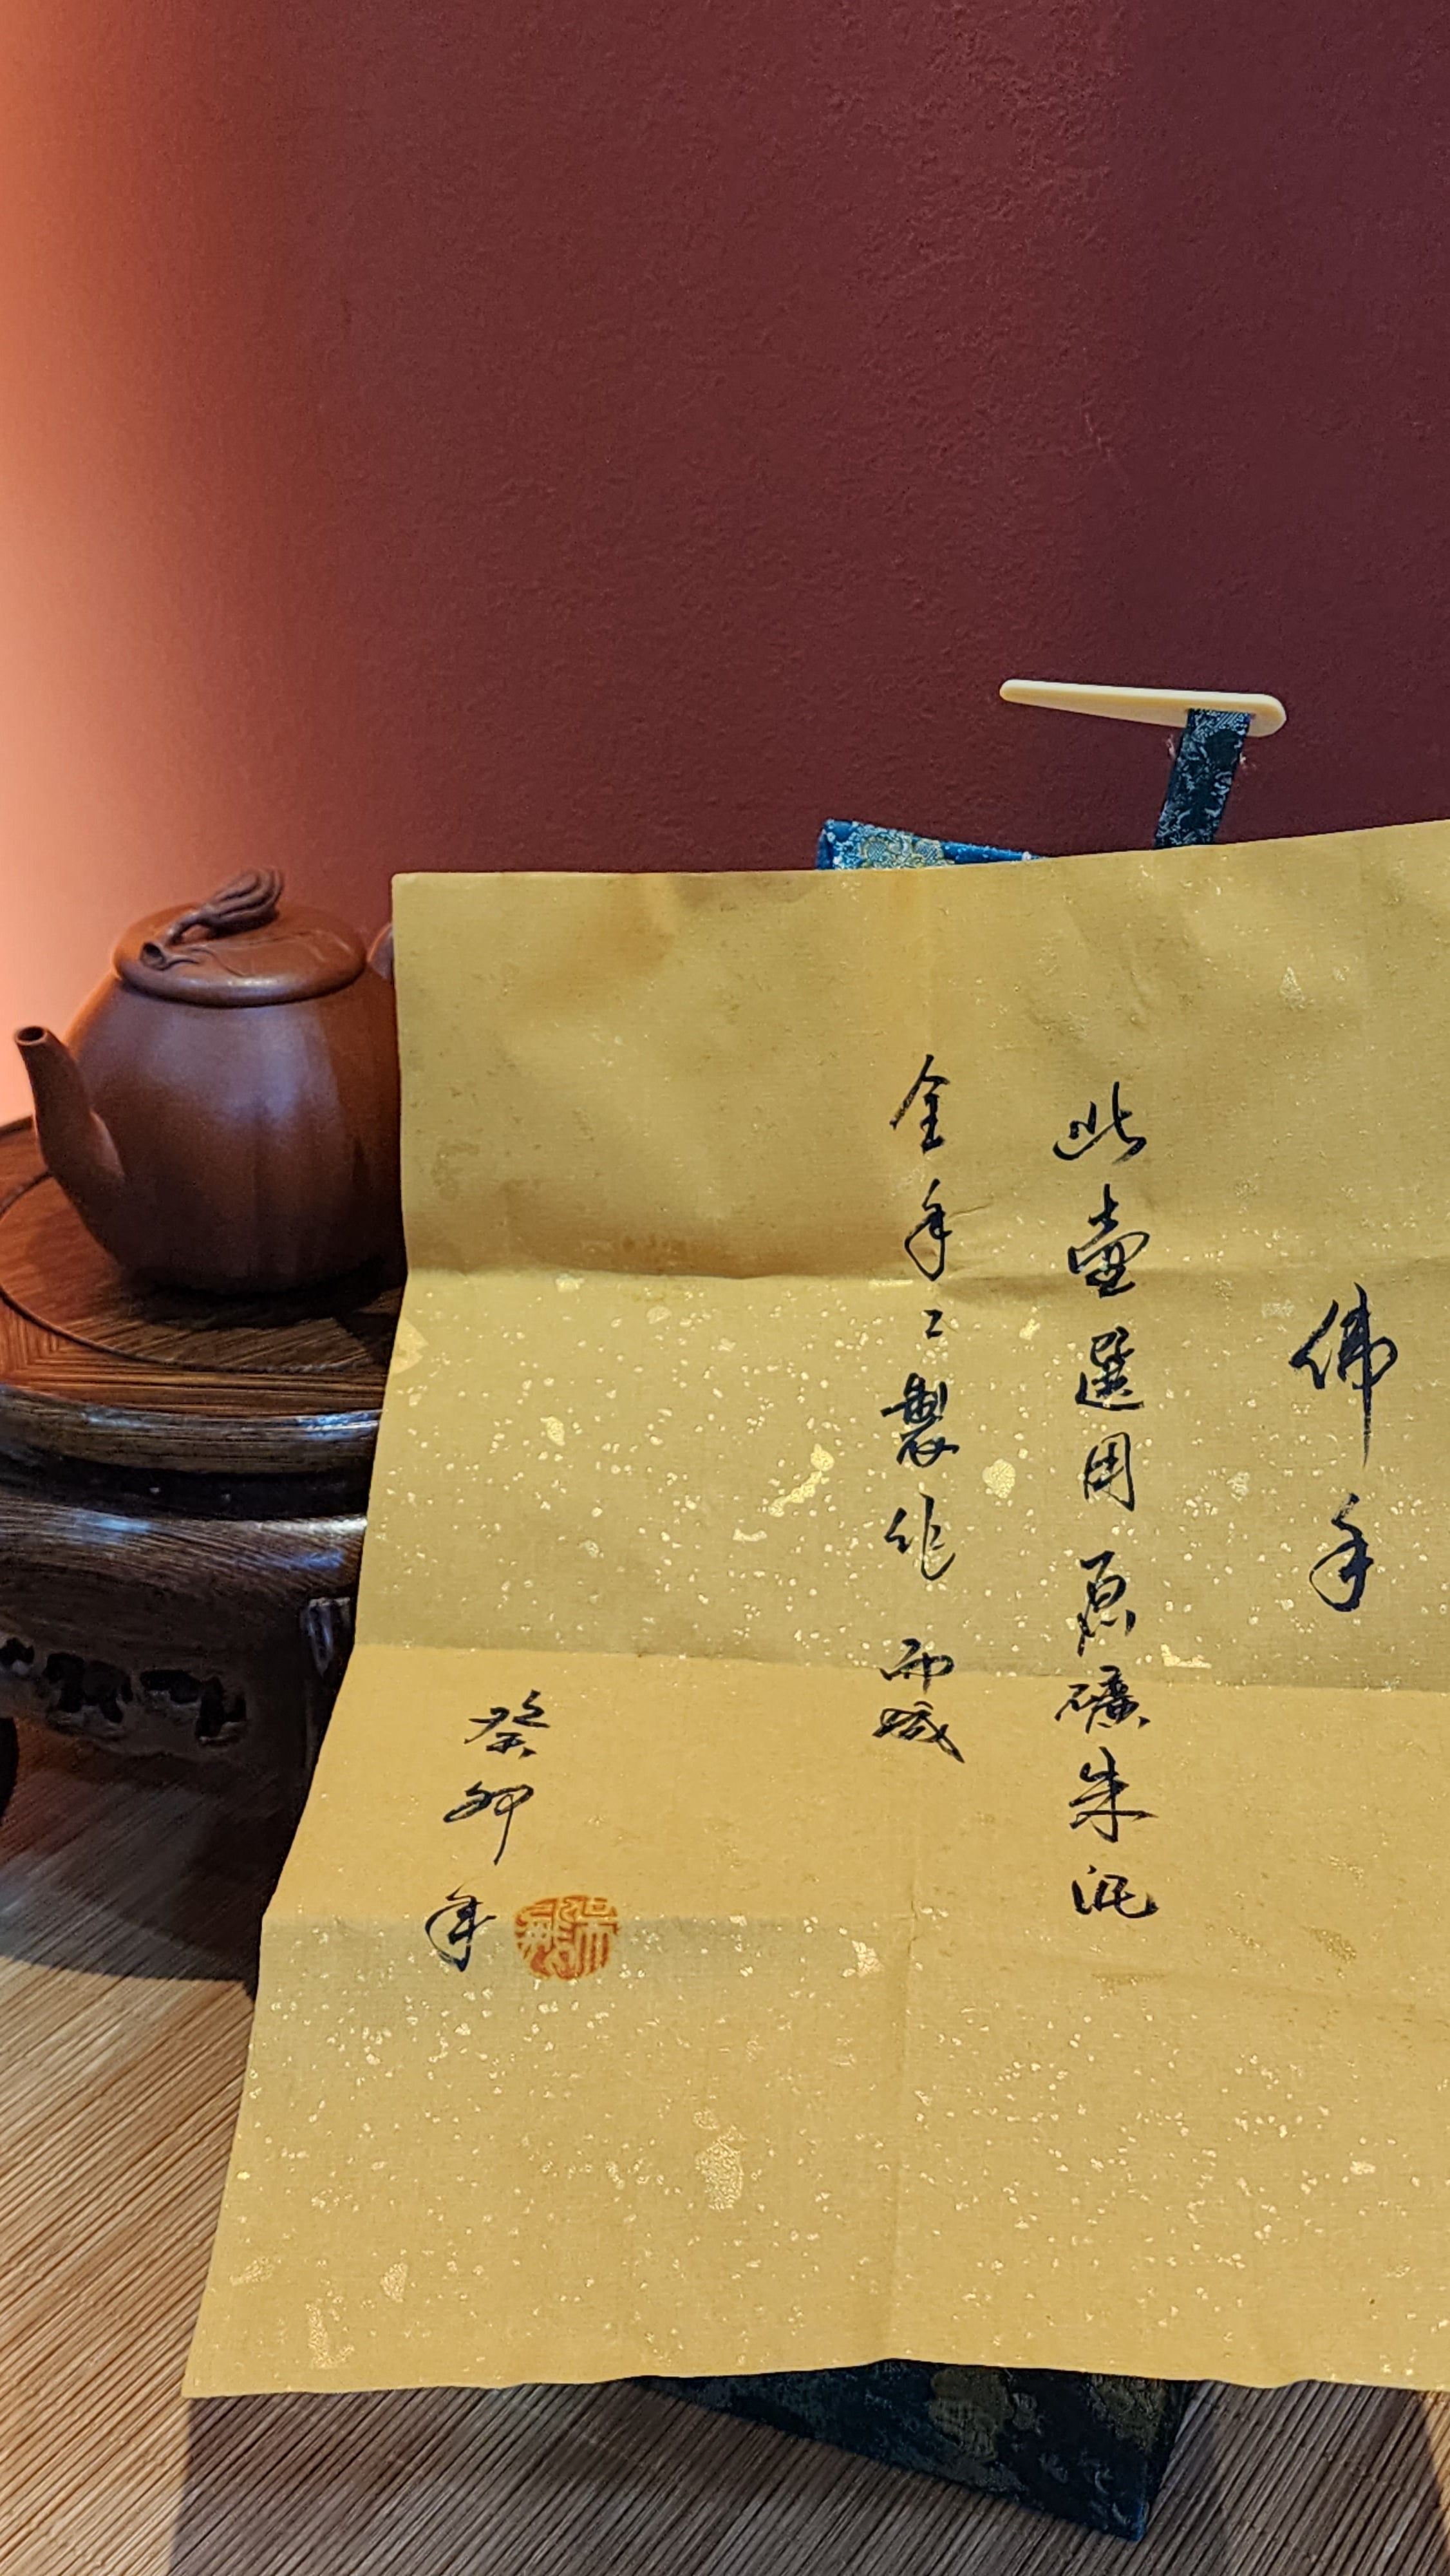 佛手
此壶選用原礦朱泥
全手工製作而成
癸卯年